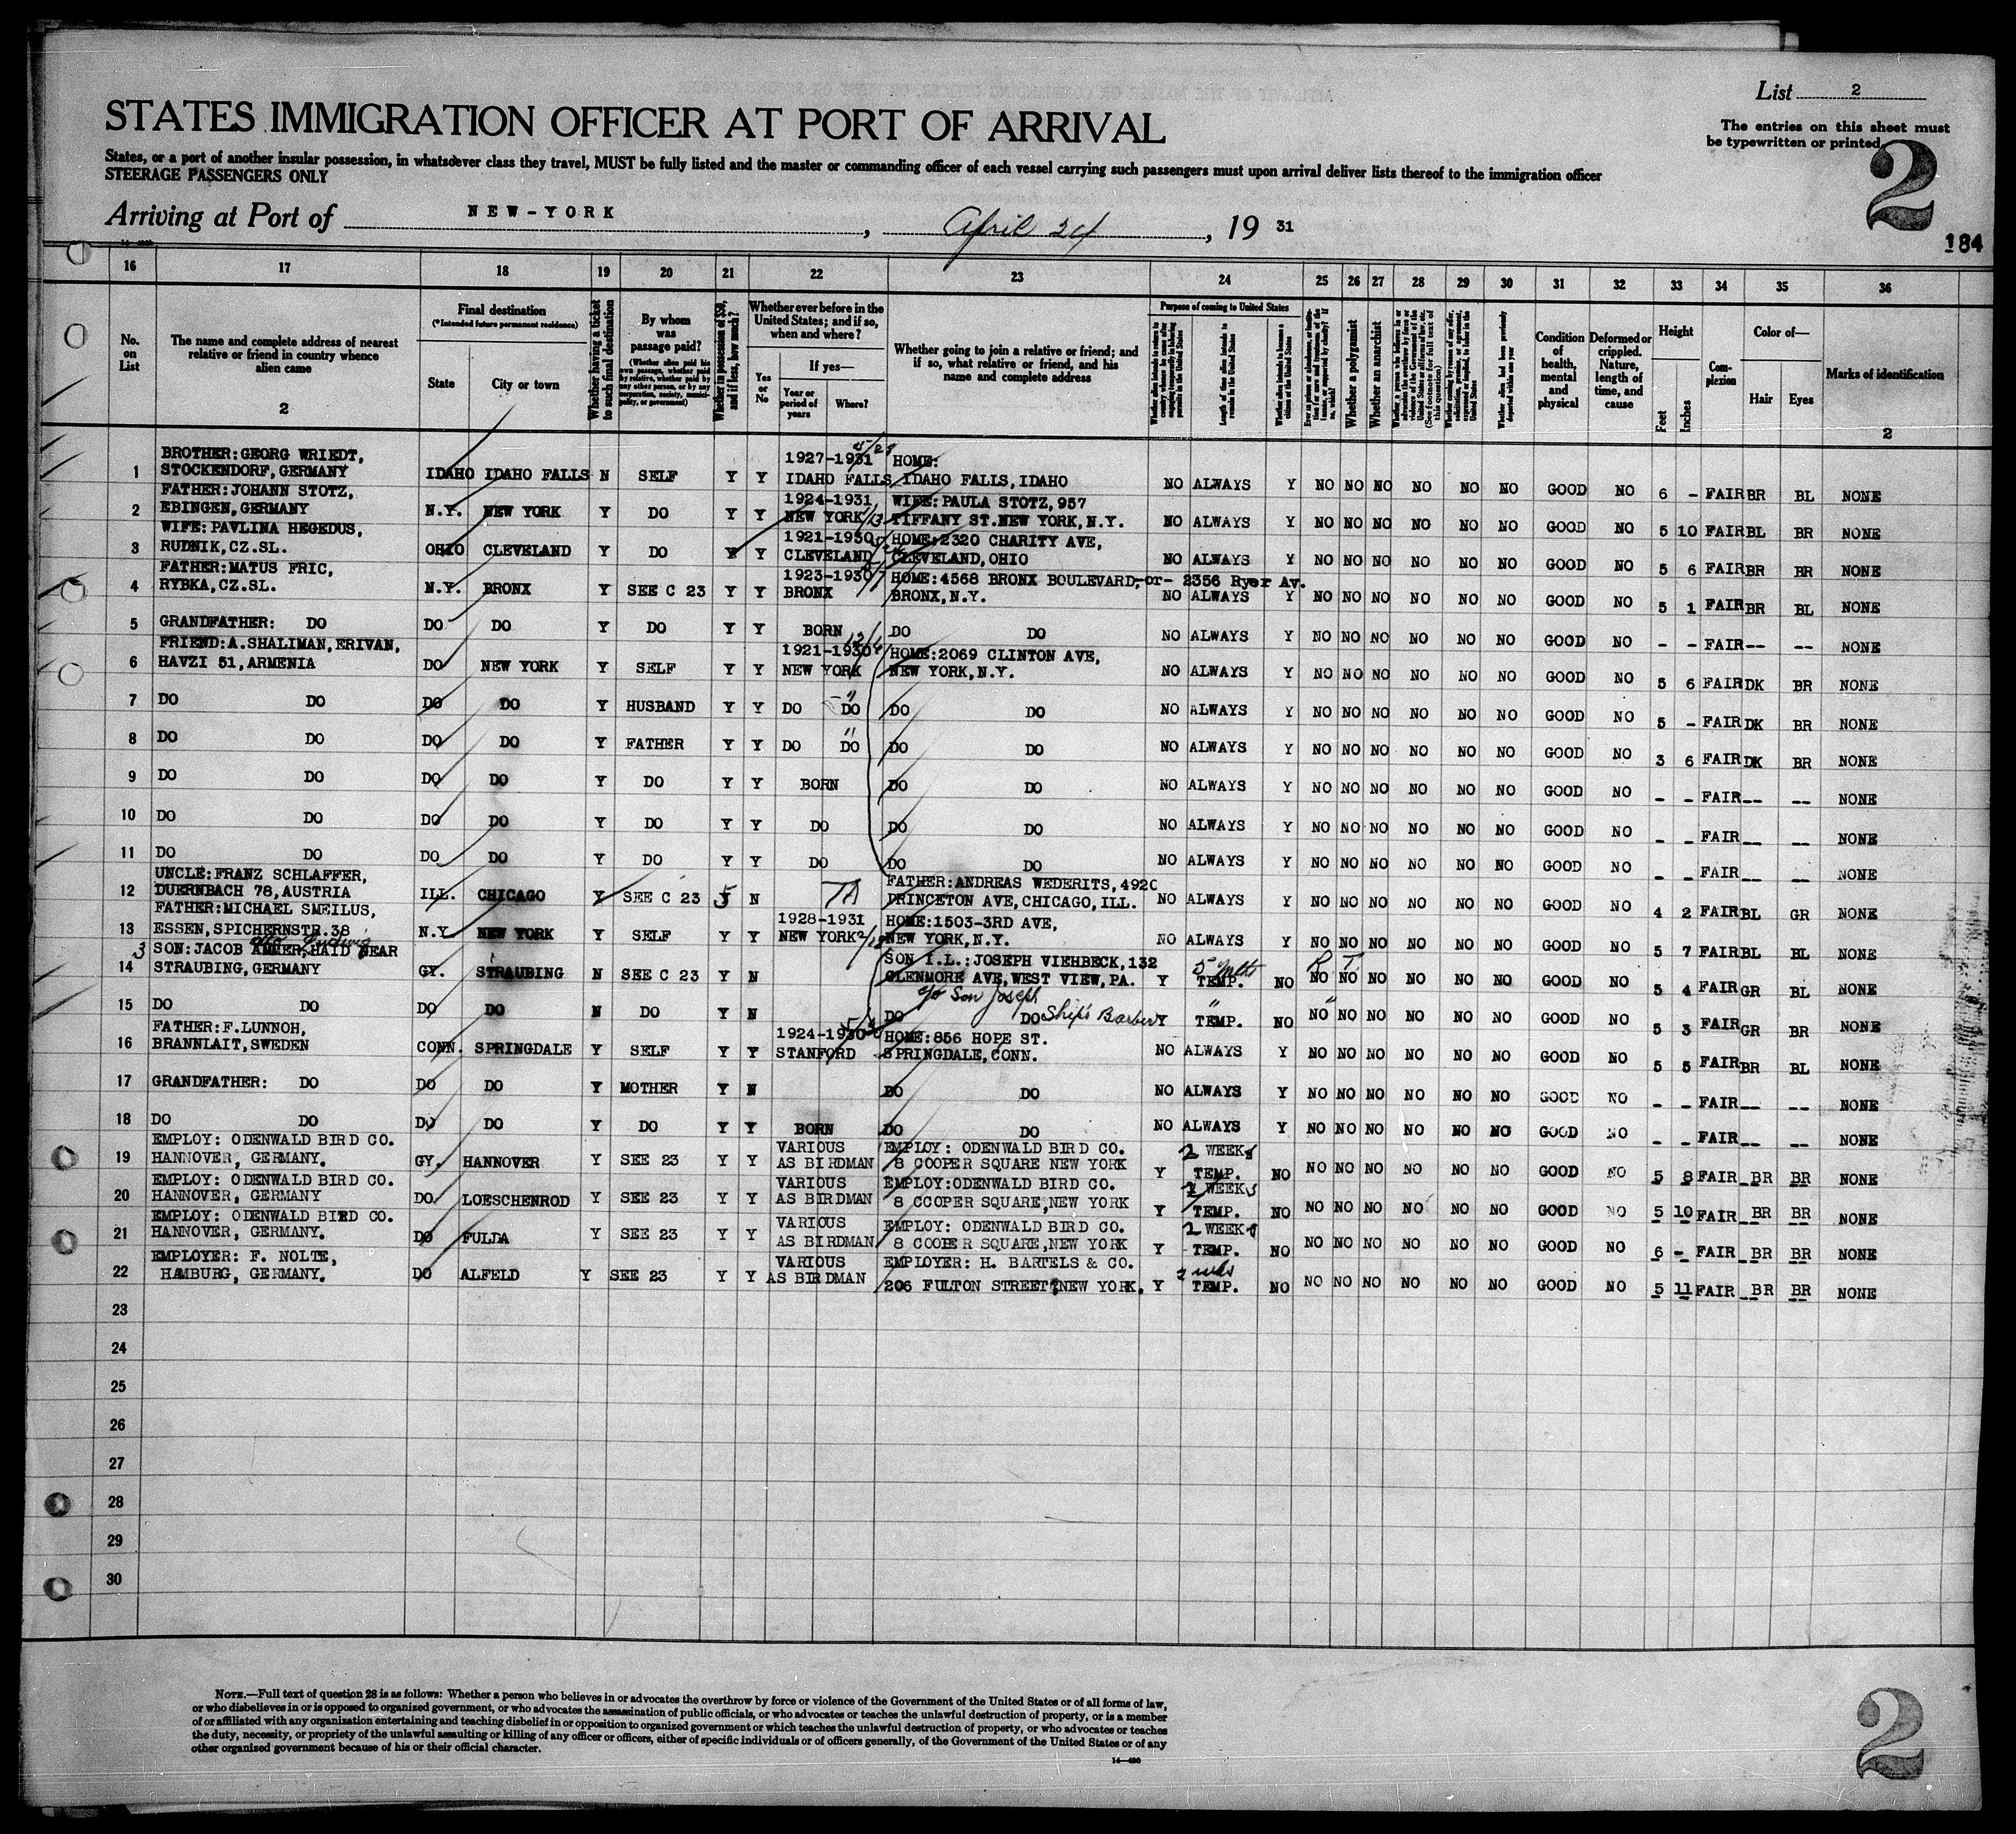 List 2
STATES IMMIGRATION OFFICER AT PORT OF ARRIVAL
The entries on this sheet must
be typewritten or printed.
2
States, or a port of another insular possession, in whatsoever class they travel, MUST be fully listed and the master or commanding officer of each vessel carrying such passengers must upon arrival deliver lists thereof to the immigration officer
STEERAGE PASSENGERS ONLY
Arriving at Port of NEW-YORK, April 24, 19 31
184
16 17 18 19 20 21 22 23 24 25 26 27 28 29 30 31 32 33 34 35 36
No. on List
The name and complete address of nearest relative or friend in country whence alien came
2
Final destination
(*Intended future permanent residence)
State
City or town
Whether having a ticket to such final destination
By whom was passage paid?
(Whether alien paid his own passage, whether paid by relative, whether paid by any other person, or by any corporation, society, municipality, or government)
Whether in possession of $50, and if less, how much?
Whether ever before in the United States; and if so, when and where?
Yes or No
If yes—
Year or period of years
Where?
Whether going to join a relative or friend; and if so, what relative or friend, and his name and complete address
Purpose of coming to United States
Length of time alien intends to remain in the United States
Whether alien intends to become a citizen of the United States
Whether a polygamist
Whether an anarchist
Condition of health, mental and physical
Deformed or crippled. Nature, length of time, and cause
Height
Feet
Inches
Complexion
Color of—
Hair
Eyes
Marks of identification
2
1 BROTHER:GEORG WRIEDT, STOCKENDORF, GERMANY IDAHO IDAHO FALLS N SELF Y Y 1927-1931 5/29 IDAHO FALLS HOME: IDAHO FALLS, IDAHO NO ALWAYS Y NO NO NO NO NO NO GOOD NO 6 - FAIR BR BL NONE
2 FATHER:JOHANN STOTZ, EBINGEN, GERMANY N.Y. NEW YORK Y DO Y Y 1924-1931 NEW YORK WIFE: PAULA STOTZ, 957 TIFFANY ST.NEW YORK, N.Y. NO ALWAYS Y NO NO NO NO NO NO GOOD NO 5 10 FAIR BL BR NONE
3 WIFE: PAVLINA HEGEDUS, RUDNIK, CZ.SL. OHIO CLEVELAND Y DO Y Y 1921-1930 CLEVELAND HOME:2320 CHARITY AVE, CLEVELAND, OHIO NO ALWAYS Y NO NO NO NO NO NO GOOD NO 5 6 FAIR BR BR NONE
4 FATHER:MATUS FRIC, RYBKA, CZ.SL. N.Y. BRONX Y SEE C 23 Y Y 1923-1930 BRONX HOME:4568 BRONX BOULEVARD,-or- 2356 Ryer Av. BRONX, N.Y. NO ALWAYS Y NO NO NO NO NO NO GOOD NO 5 1 FAIR BR BL NONE
5 GRANDFATHER: DO DO DO Y DO Y Y BORN DO DO NO ALWAYS Y NO NO NO NO NO NO GOOD NO - - FAIR -- -- NONE
6 FRIEND:A.SHALIMAN, ERIVAN, HAVZI 51, ARMENIA DO NEW YORK Y SELF Y Y 1921-1930 NEW YORK HOME:2069 CLINTON AVE, NEW YORK, N.Y. NO ALWAYS Y NO NO NO NO NO NO GOOD NO 5 6 FAIR DK BR NONE
7 DO DO DO DO Y HUSBAND Y Y DO DO DO DO NO ALWAYS Y NO NO NO NO NO NO GOOD NO 5 - FAIR DK BR NONE
8 DO DO DO DO Y FATHER Y Y DO DO DO DO NO ALWAYS Y NO NO NO NO NO NO GOOD NO 3 6 FAIR DK BR NONE
9 DO DO DO DO Y DO Y Y BORN DO DO NO ALWAYS Y NO NO NO NO NO NO GOOD NO - - FAIR -- -- NONE
10 DO DO DO DO Y DO Y Y DO DO DO NO ALWAYS Y NO NO NO NO NO NO GOOD NO - - FAIR -- -- NONE
11 DO DO DO DO Y DO Y Y DO DO DO NO ALWAYS Y NO NO NO NO NO NO GOOD NO - - FAIR -- -- NONE
12 UNCLE:FRANZ SCHLAFFER, DUERNBACH 78, AUSTRIA ILL. CHICAGO Y SEE C 23 5 N FATHER:ANDREAS WEDERITS, 4920 PRINCETON AVE, CHICAGO, ILL. NO ALWAYS Y NO NO NO NO NO NO GOOD NO 4 2 FAIR BL GR NONE
13 FATHER:MICHAEL SMEILUS, ESSEN, SPICHERNSTR.38 N.Y. NEW YORK Y SELF Y Y 1928-1931 NEW YORK HOME:1503-3RD AVE, NEW YORK, N.Y. NO ALWAYS Y NO NO NO NO NO NO GOOD NO 5 7 FAIR BL BL NONE
14 3 SON:JACOB AMMER, HAID NEAR STRAUBING, GERMANY GY. STRAUBING N SEE C 23 Y N SON I.L.:JOSEPH VIEHBECK, 132 GLENMORE AVE, WEST VIEW, PA. Y 5 mths TEMP. NO R.T. NO NO NO NO NO NO GOOD NO 5 4 FAIR GR BL NONE
15 DO DO DO DO N DO Y N c/o Son Joseph DO DO Ship's Barber Y " TEMP. NO " NO NO NO NO NO NO GOOD NO 5 3 FAIR GR BR NONE
16 FATHER:F.LUNNOH, BRANNLAIT, SWEDEN CONN. SPRINGDALE Y SELF Y Y 1924-1930 STANFORD HOME:856 HOPE ST. SPRINGDALE, CONN. NO ALWAYS Y NO NO NO NO NO NO GOOD NO 5 5 FAIR BR BL NONE
17 GRANDFATHER: DO DO DO Y MOTHER Y N DO DO NO ALWAYS Y NO NO NO NO NO NO GOOD NO - - FAIR -- -- NONE
18 DO DO DO DO Y DO Y Y BORN DO DO NO ALWAYS Y NO NO NO NO NO NO GOOD NO - - FAIR -- -- NONE
19 EMPLOY: ODENWALD BIRD CO. HANNOVER, GERMANY. GY. HANNOVER Y SEE 23 Y Y VARIOUS AS BIRDMAN EMPLOY: ODENWALD BIRD CO. 8 COOPER SQUARE NEW YORK Y 2 WEEKS TEMP. NO NO NO NO NO NO NO GOOD NO 5 8 FAIR BR BR NONE
20 EMPLOY: ODENWALD BIRD CO. HANNOVER, GERMANY DO. LOESCHENROD Y SEE 23 Y Y VARIOUS AS BIRDMAN EMPLOY:ODENWALD BIRD CO. 8 CCOPER SQUARE, NEW YORK Y WEEKS TEMP. NO NO NO NO NO NO NO GOOD NO 5 10 FAIR BR BR NONE
21 EMPLOY: ODENWALD BIRD CO. HANNOVER, GERMANY. DO FULDA Y SEE 23 Y Y VARIOUS AS BIRDMAN EMPLOY: ODENWALD BIRD CO. 8 COOPER SQUARE, NEW YORK Y 2 WEEKS TEMP. NO NO NO NO NO NO NO GOOD NO 6 - FAIR BR BR NONE
22 EMPLOYER: F. NOLTE, HAMBURG, GERMANY. DO ALFELD Y SEE 23 Y Y VARIOUS AS BIRDMAN EMPLOYER: H. BARTELS & CO. 206 FULTON STREET, NEW YORK. Y 2 wks TEMP. NO NO NO NO NO NO NO GOOD NO 5 11 FAIR BR BR NONE
23
24
25
26
27
28
29
30
NOTE.—Full text of question 28 is as follows: Whether a person who believes in or advocates the overthrow by force or violence of the Government of the United States or of all forms of law,
or who disbelieves in or is opposed to organized government, or who advocates the assassination of public officials, or who advocates or teaches the unlawful destruction of property, or is a member
of or affiliated with any organization entertaining and teaching disbelief in or opposition to organized government or which teaches the unlawful destruction of property, or who advocates or teaches
the duty, necessity, or propriety of the unlawful assaulting or killing of any officer or officers, either of specific individuals or of officers generally, of the Government of the United States or of any
other organized government because of his or their official character.
14—430
2